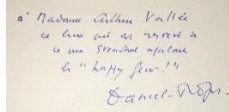 à Madame Arthur Vallée
ce livre qui est réservé à
ce que Stendhal appelait
les "happy few!"
Daniel-Rops